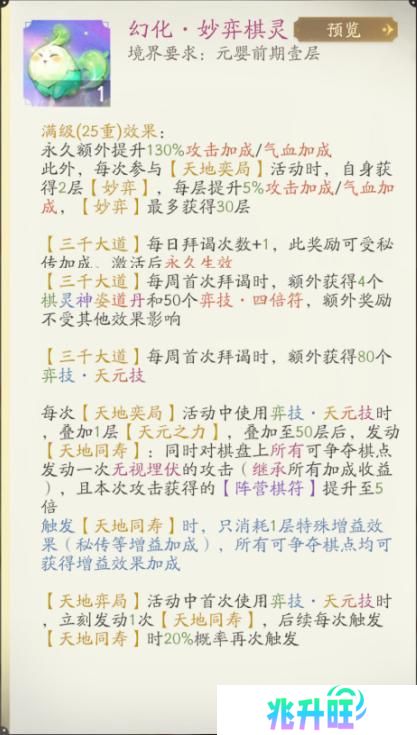 幻化·妙弈棋灵
预览
境界要求：元婴前期壹层
1
满级(25重)效果：
永久额外提升130%攻击加成/气血加成
此外，每次参与【天地奕局】活动时，自身获
得2层【妙弈】，每层提升5%攻击加成/气血加
成，【妙弈】最多获得30层
【三千大道】每日拜谒次数+1，此奖励可受秘
传加成。激活后永久生效
【三千大道】每周首次拜谒时，额外获得4个
棋灵神姿道丹和50个弈技·四倍符，额外奖励
不受其他效果影响
【三千大道】每周首次拜谒时，额外获得80个
弈技·天元技
每次【天地奕局】活动中使用弈技·天元技时
，叠加1层【天元之力】，叠加至50层后，发动
【天地同寿】：同时对棋盘上所有可争夺棋点
发动一次无视埋伏的攻击（继承所有加成收益
），且本次攻击获得的【阵营棋符】提升至5
倍
触发【天地同寿】时，只消耗1层特殊增益效
果（秘传等增益加成），所有可争夺棋点均可
获得增益效果加成
【天地弈局】活动中首次使用弈技·天元技时
，立刻发动1次【天地同寿】，后续每次触发
【天地同寿】时20%概率再次触发
兆升旺